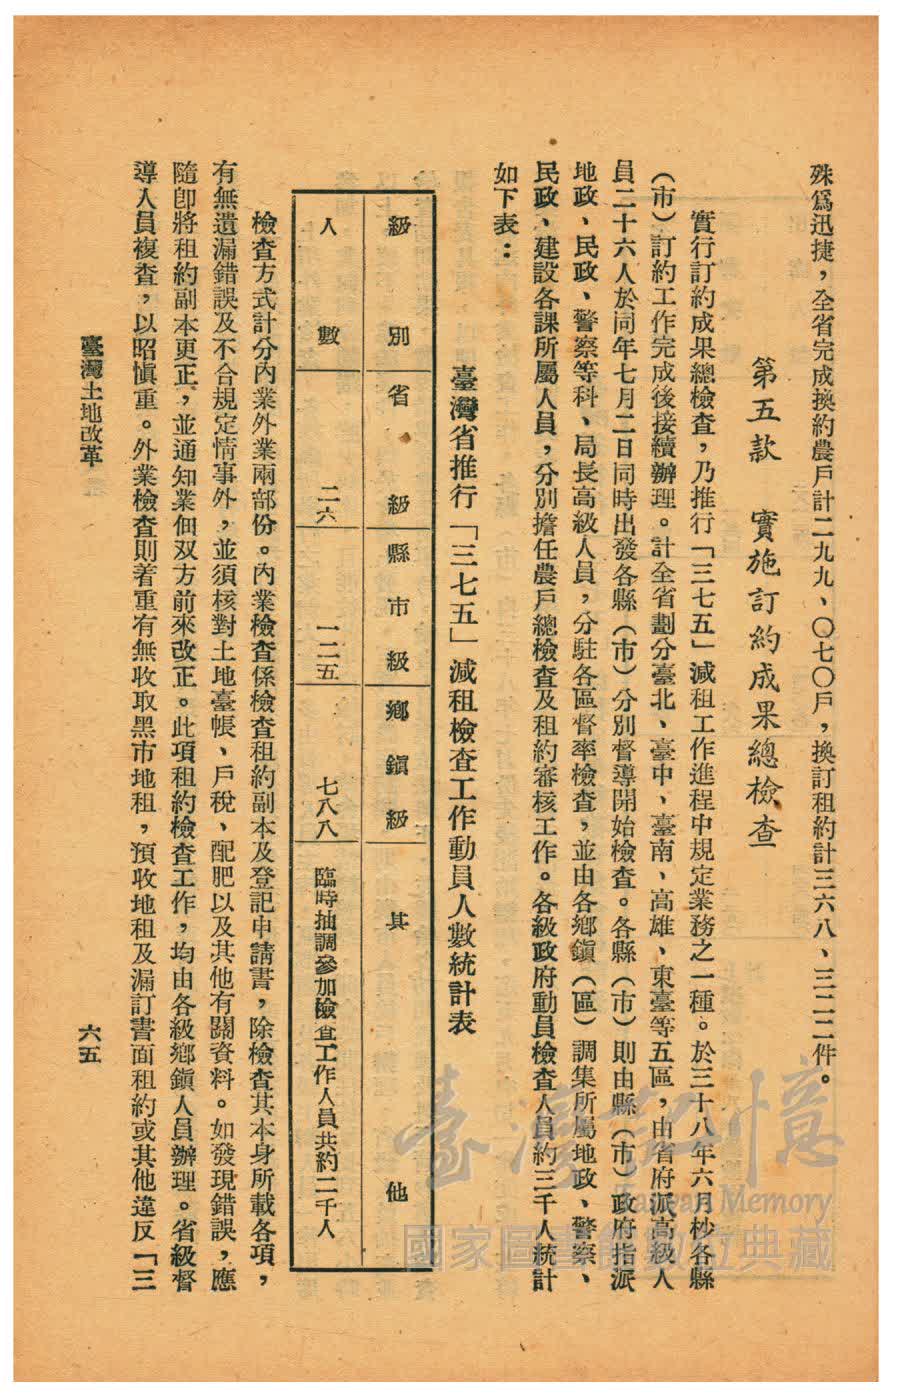 殊爲迅捷，全省完成換約農戶計二九九、〇七〇戶，換訂租約計三六八、三二二件。
第五款　實施訂約成果總檢查
實行訂約成果總檢查，乃推行「三七五」減租工作進程中規定業務之一種。於三十八年六月杪各縣
（市）訂約工作完成後接續辦理。計全省劃分臺北、臺中、臺南、高雄、東臺等五區，由省府派高級人
員二十六人於同年七月二日同時出發各縣（市）分別督導開始檢查。各縣（市）則由縣（市）政府指派
地政、民政、警察等科、局長高級人員，分駐各區督率檢查，並由各鄉鎮（區）調集所屬地政、警察、
民政、建設各課所屬人員，分別擔任農戶總檢查及租約審核工作。各級政府動員檢查人員約三千人統計
如下表：
臺灣省推行「三七五」減租檢查工作動員人數統計表
級別　省級　縣市級　鄉鎮級　其他
人數　二六　一二五　七八八　臨時抽調參加檢查工作人員共約二千人
檢查方式計分內業外業兩部份。內業檢查係檢查租約副本及登記申請書，除檢查其本身所載各項，
有無遺漏錯誤及不合規定情事外，並須核對土地臺帳、戶稅、配肥以及其他有關資料。如發現錯誤，應
隨卽將租約副本更正，並通知業佃双方前來改正。此項租約檢查工作，均由各級鄉鎮人員辦理。省級督
導人員複查，以昭愼重。外業檢查則着重有無收取黑市地租，預收地租及漏訂書面租約或其他違反「三
臺灣土地改革
六五
臺灣記憶
Taiwan Memory
國家圖書館數位典藏